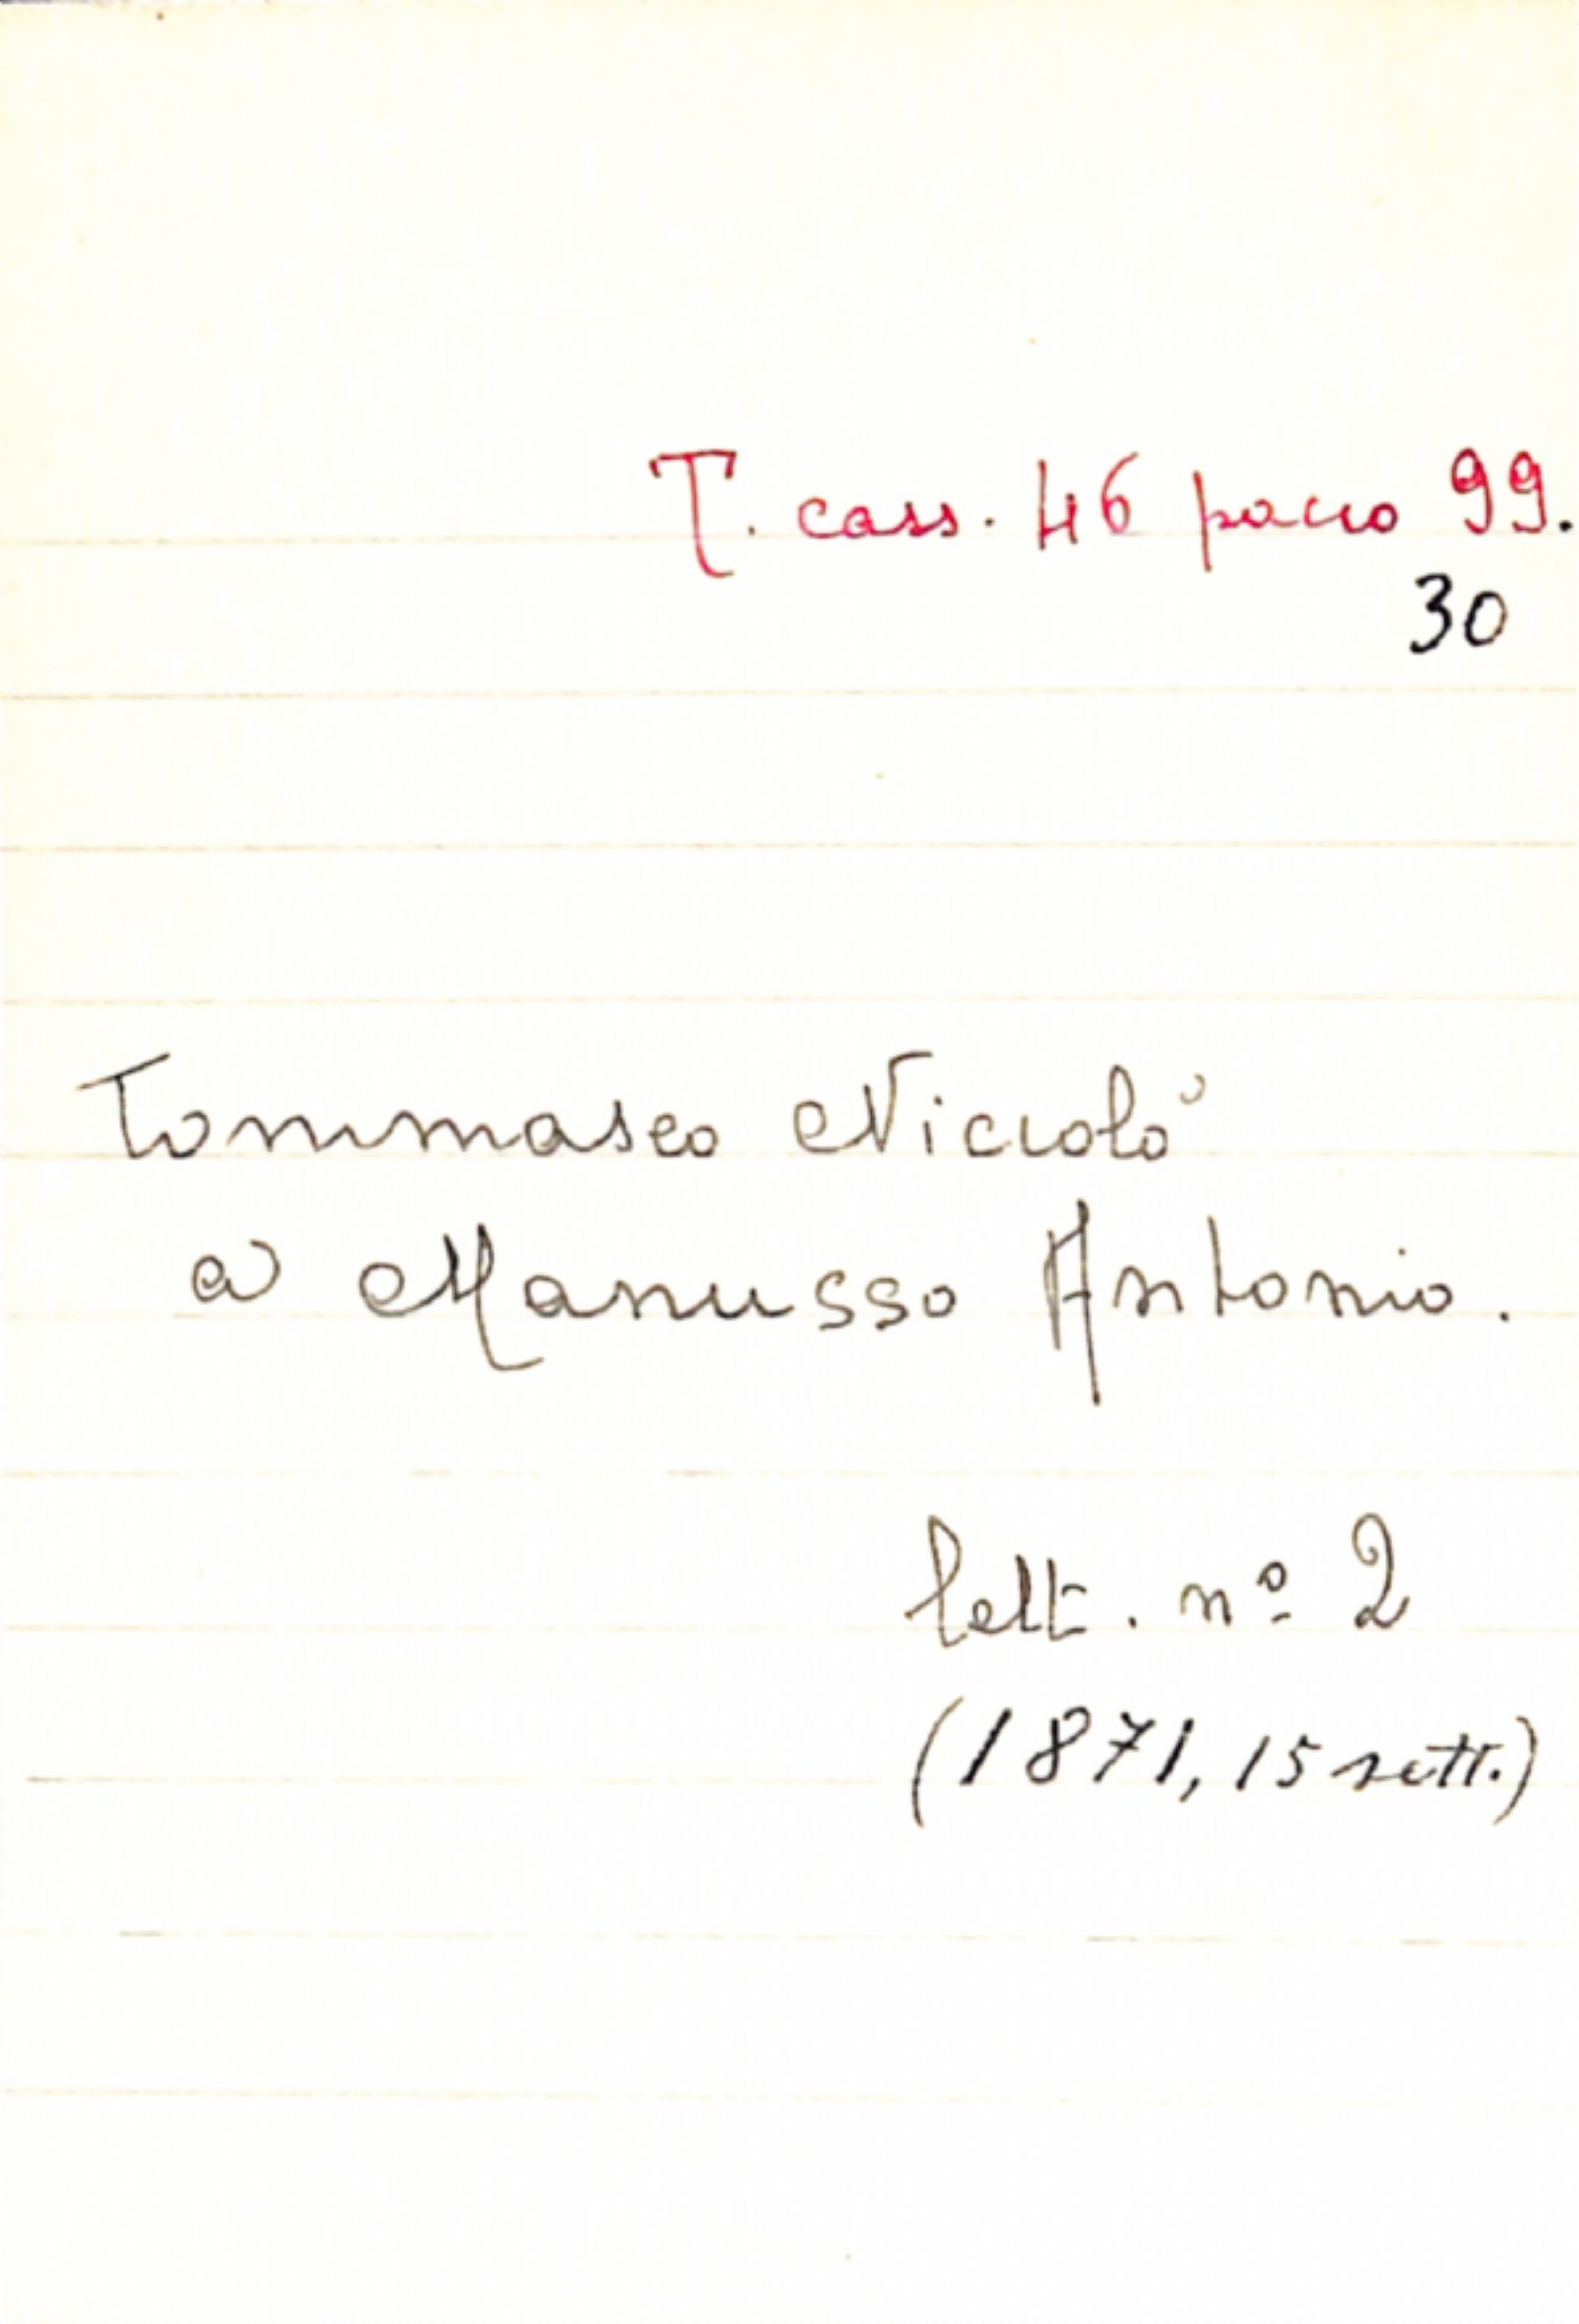 T. cass. 46 pacco 99.
30
Tommaseo Niccolò
a Manusso Antonio.
lett. nº 2
(1871, 15 sett.)